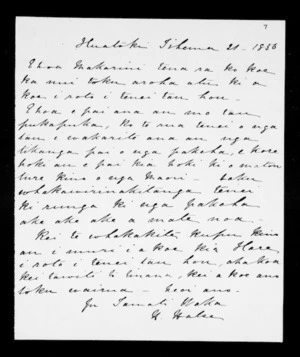 7
Huatoki Tihema 21 - 1856
E hoa Makarini tena ra ko koe
ka nui toku aroha atu ki a
koe i roto i tenei tau hou.
E hoa e pai ana au mo tau
pukapuka, Ko te rua tenei o nga
tau i wakarite ana au nga
tikanga pai o nga pakeha, e hoa
hoki au e pai kia hoki ki o matou
ture kino o nga Maori. taku
whakawirinakitanga tenei
ki runga ki nga pakeha
ake ake ake a mate noa.
Kei te whakakite kupu kino
au i muri i a koe Kia Hare
i roto i tenei tau hou, ahakoa
kei tawiti te tinana, kei a koe ano
toku wairua - Heoi ano.
Na Tamati Waka
H Halse